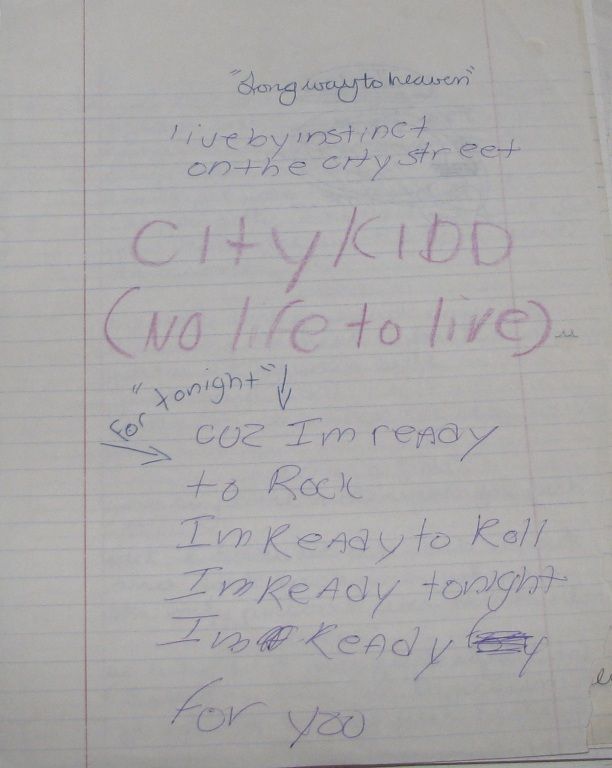 "Long way to heaven"
live by instinct
on the city street
City KIDD
(No life to live)
For "tonight"
cuz Im ready
to Rock
Im Ready to Roll
Im Ready tonight
Im Ready
For you